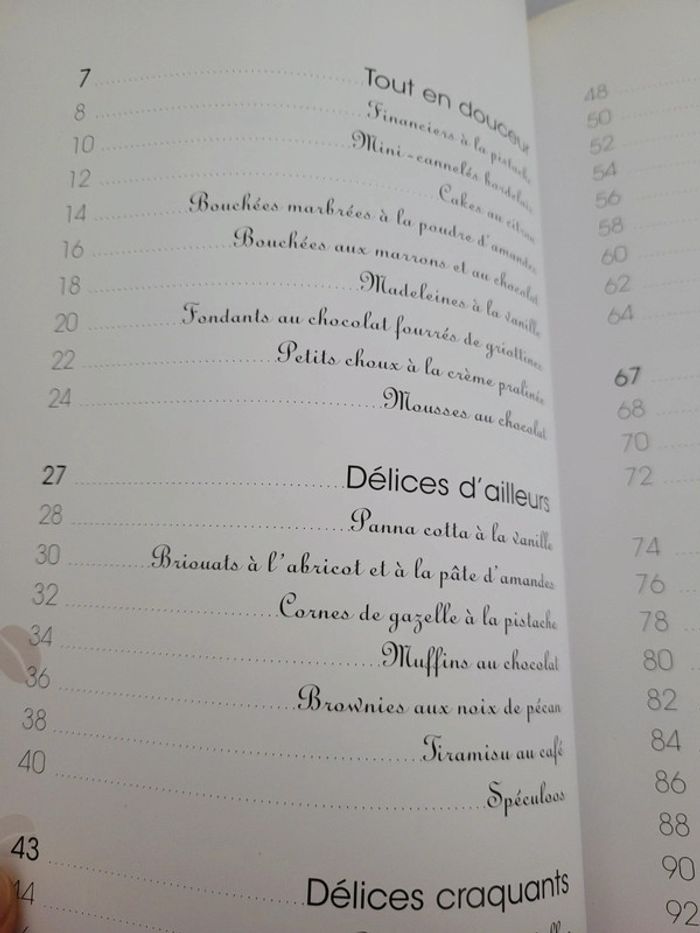 7 Tout en douceur
8 Financiers à la pistache
10 Mini-cannelés bordelais
12 Cakes au citron
14 Bouchées marbrées à la poudre d'amandes
16 Bouchées aux marrons et au chocolat
18 Madeleines à la vanille
20 Fondants au chocolat fourrés de griottines
22 Petits choux à la crème pralinée
24 Mousses au chocolat
27 Délices d'ailleurs
28 Panna cotta à la vanille
30 Briouats à l'abricot et à la pâte d'amandes
32 Cornes de gazelle à la pistache
34 Muffins au chocolat
36 Brownies aux noix de pécan
38 Tiramisu au café
40 Spéculoos
43 Délices craquants
44
48
50
52
54
56
58
60
62
64
67
68
70
72
74
76
78
80
82
84
86
88
90
92